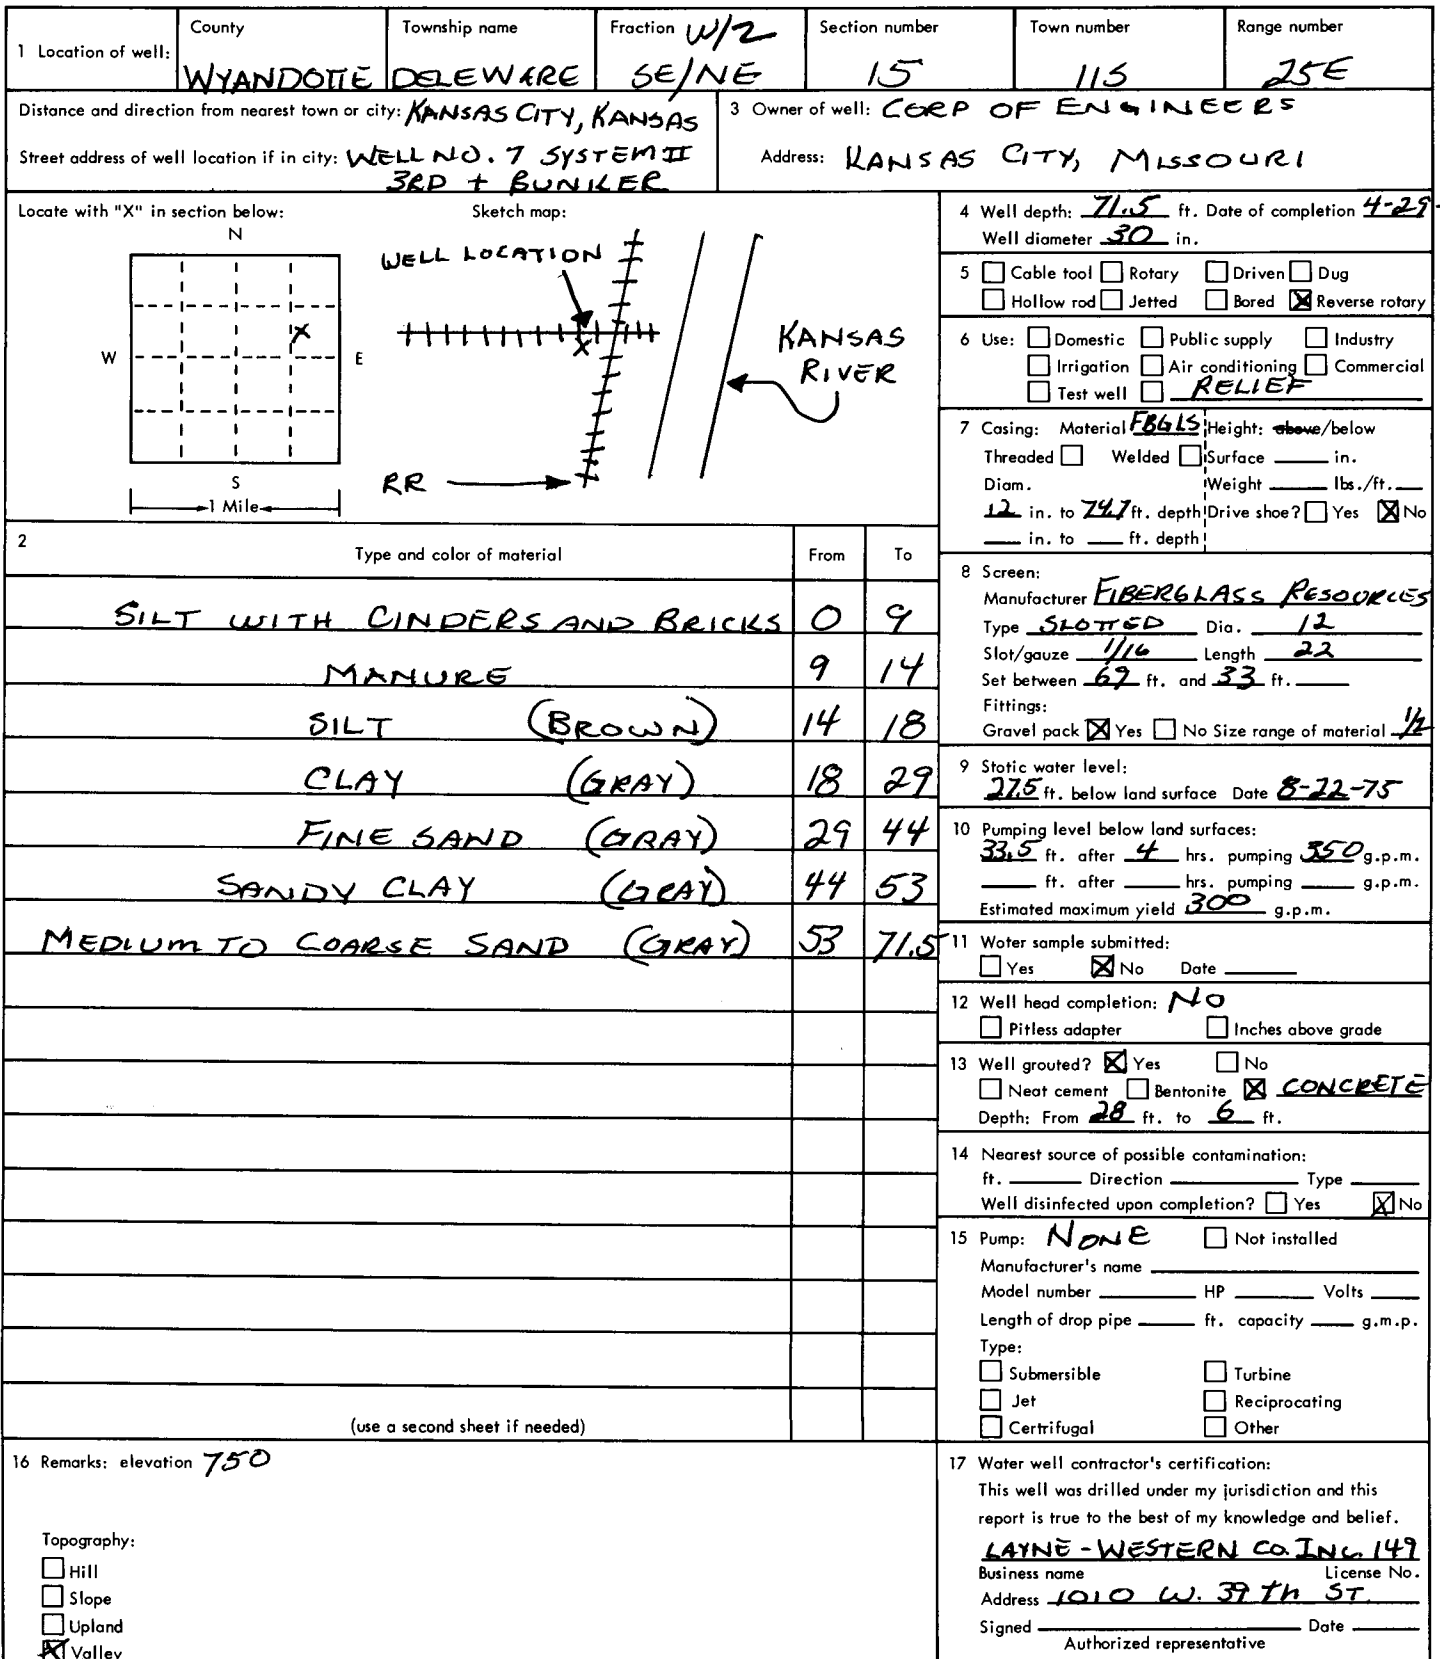 1 Location of well:
County
WYANDOTTE
Township name
DELEWARE
Fraction W/2
SE/NE
Section number
15
Town number
11S
Range number
25E
Distance and direction from nearest town or city: KANSAS CITY, KANSAS
Street address of well location if in city: WELL NO. 7 SYSTEM II
3RD + BUNKER
3 Owner of well: CORP OF ENGINEERS
Address: KANSAS CITY, MISSOURI
Locate with "X" in section below:
N
W
X
E
S
1 Mile
Sketch map:
WELL LOCATION
X
KANSAS
RIVER
RR
2
Type and color of material From To
SILT WITH CINDERS AND BRICKS 0 9
MANURE 9 14
SILT (BROWN) 14 18
CLAY (GRAY) 18 29
FINE SAND (GRAY) 29 44
SANDY CLAY (GRAY) 44 53
MEDIUM TO COARSE SAND (GRAY) 53 71.5
(use a second sheet if needed)
4 Well depth: 71.5 ft. Date of completion 4-29-
Well diameter 30 in.
5 Cable tool Rotary Driven Dug
Hollow rod Jetted Bored X Reverse rotary
6 Use: Domestic Public supply Industry
Irrigation Air conditioning Commercial
Test well RELIEF
7 Casing: Material FBGLS Height: above/below
Threaded Welded Surface in.
Diam. Weight lbs./ft.
12 in. to 74.7 ft. depth Drive shoe? Yes X No
in. to ft. depth
8 Screen:
Manufacturer FIBERGLASS RESOURCES
Type SLOTTED Dia. 12
Slot/gauze 1/16 Length 22
Set between 69 ft. and 33 ft.
Fittings:
Gravel pack X Yes No Size range of material 1/2
9 Stotic water level:
27.5 ft. below land surface Date 8-22-75
10 Pumping level below land surfaces:
33.5 ft. after 4 hrs. pumping 350 g.p.m.
ft. after hrs. pumping g.p.m.
Estimated maximum yield 300 g.p.m.
11 Woter sample submitted:
Yes X No Date
12 Well head completion: NO
Pitless adapter Inches above grade
13 Well grouted? X Yes No
Neat cement Bentonite X CONCRETE
Depth: From 28 ft. to 6 ft.
14 Nearest source of possible contamination:
ft. Direction Type
Well disinfected upon completion? Yes X No
15 Pump: NONE Not installed
Manufacturer's name
Model number HP Volts
Length of drop pipe ft. capacity g.m.p.
Type:
Submersible Turbine
Jet Reciprocating
Certrifugal Other
16 Remarks: elevation 750
Topography:
Hill
Slope
Upland
X Valley
17 Water well contractor's certification:
This well was drilled under my jurisdiction and this
report is true to the best of my knowledge and belief.
LAYNE-WESTERN CO. INC. 149
Business name License No.
Address 1010 W. 39th ST.
Signed Date
Authorized representative